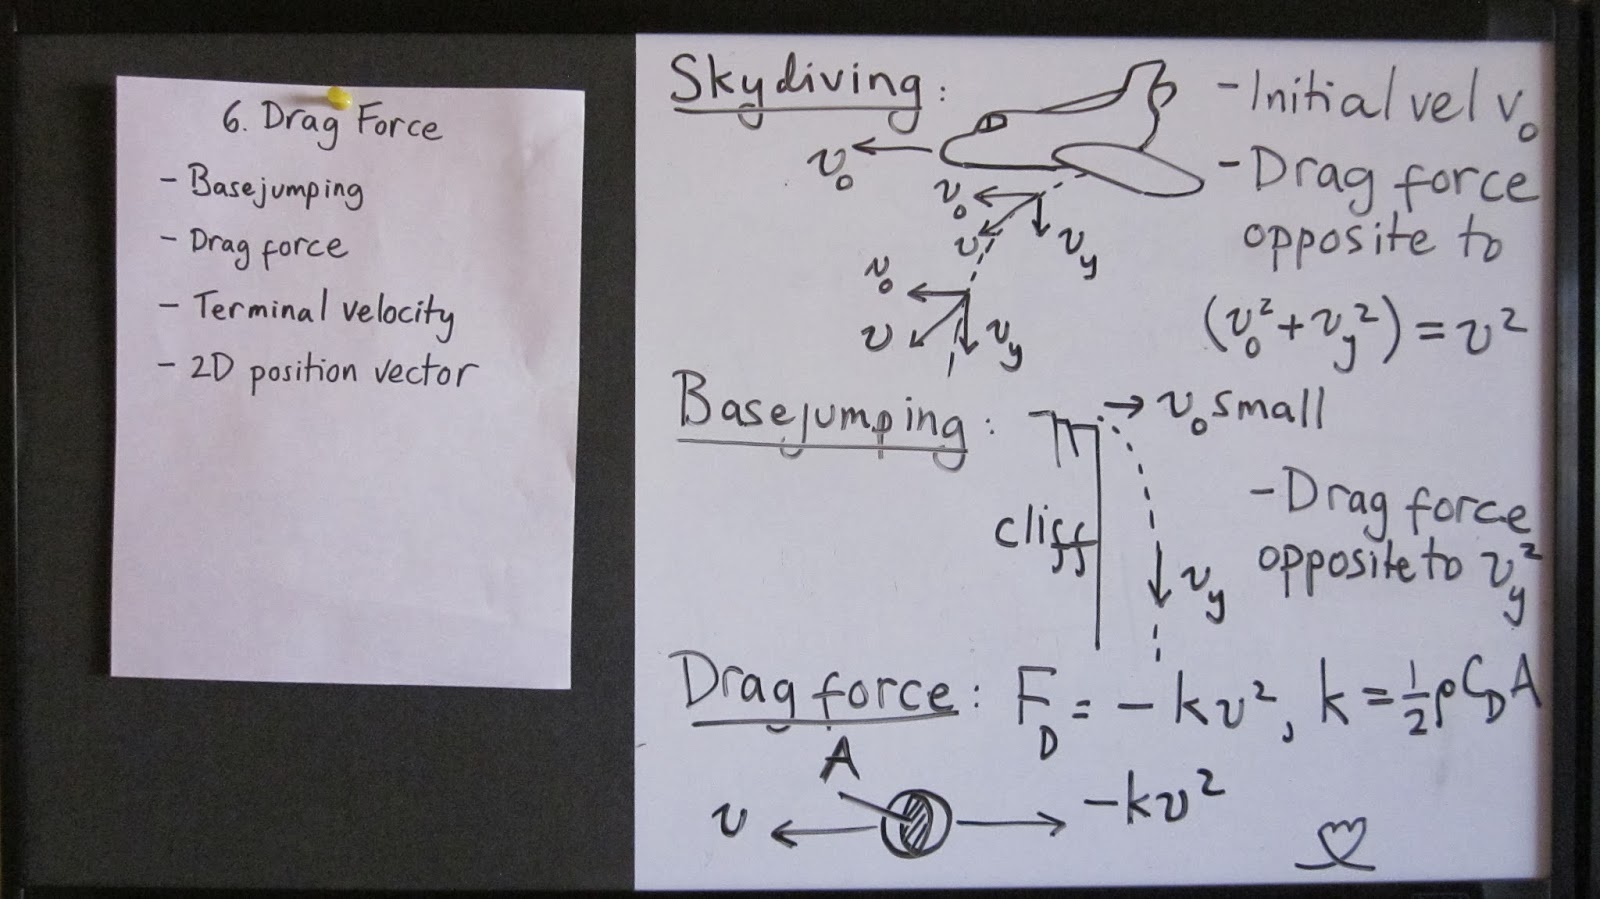 6. Drag Force
- Basejumping
- Drag force
- Terminal velocity
- 2D position vector
Skydiving:
- Initial vel v₀
- Drag force
opposite to
(v₀²+v_y²) = v²
v₀
v₀
v
v_y
v₀
v
v_y
Basejumping:
v₀ small
cliff
- Drag force
opposite to v_y²
v_y
Drag force: F_D = -kv², k = ½ρC_DA
A
v
-kv²